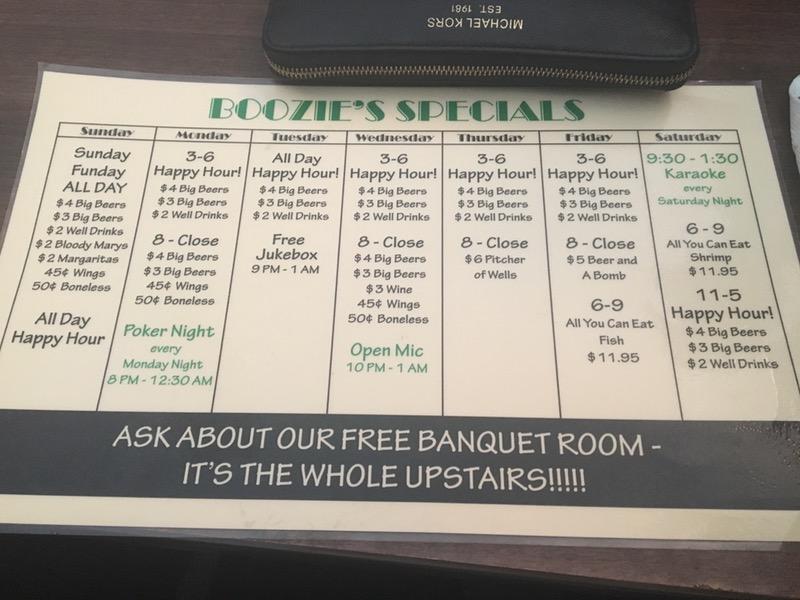 MICHAEL KORS
EST. 1981
BOOZIE'S SPECIALS
Sunday
Sunday
Funday
ALL DAY
$4 Big Beers
$3 Big Beers
$2 Well Drinks
$2 Bloody Marys
$2 Margaritas
45¢ Wings
50¢ Boneless
All Day
Happy Hour
Monday
3-6
Happy Hour!
$4 Big Beers
$3 Big Beers
$2 Well Drinks
8 - Close
$4 Big Beers
$3 Big Beers
45¢ Wings
50¢ Boneless
Poker Night
every
Monday Night
8 PM - 12:30 AM
Tuesday
All Day
Happy Hour!
$4 Big Beers
$3 Big Beers
$2 Well Drinks
Free
Jukebox
9 PM - 1 AM
Wednesday
3-6
Happy Hour!
$4 Big Beers
$3 Big Beers
$2 Well Drinks
8 - Close
$4 Big Beers
$3 Big Beers
$3 Wine
45¢ Wings
50¢ Boneless
Open Mic
10 PM - 1 AM
Thursday
3-6
Happy Hour!
$4 Big Beers
$3 Big Beers
$2 Well Drinks
8 - Close
$6 Pitcher
of Wells
Friday
3-6
Happy Hour!
$4 Big Beers
$3 Big Beers
$2 Well Drinks
8 - Close
$5 Beer and
A Bomb
6-9
All You Can Eat
Fish
$11.95
Saturday
9:30 - 1:30
Karaoke
every
Saturday Night
6 - 9
All You Can Eat
Shrimp
$11.95
11-5
Happy Hour!
$4 Big Beers
$3 Big Beers
$2 Well Drinks
ASK ABOUT OUR FREE BANQUET ROOM -
IT'S THE WHOLE UPSTAIRS!!!!!